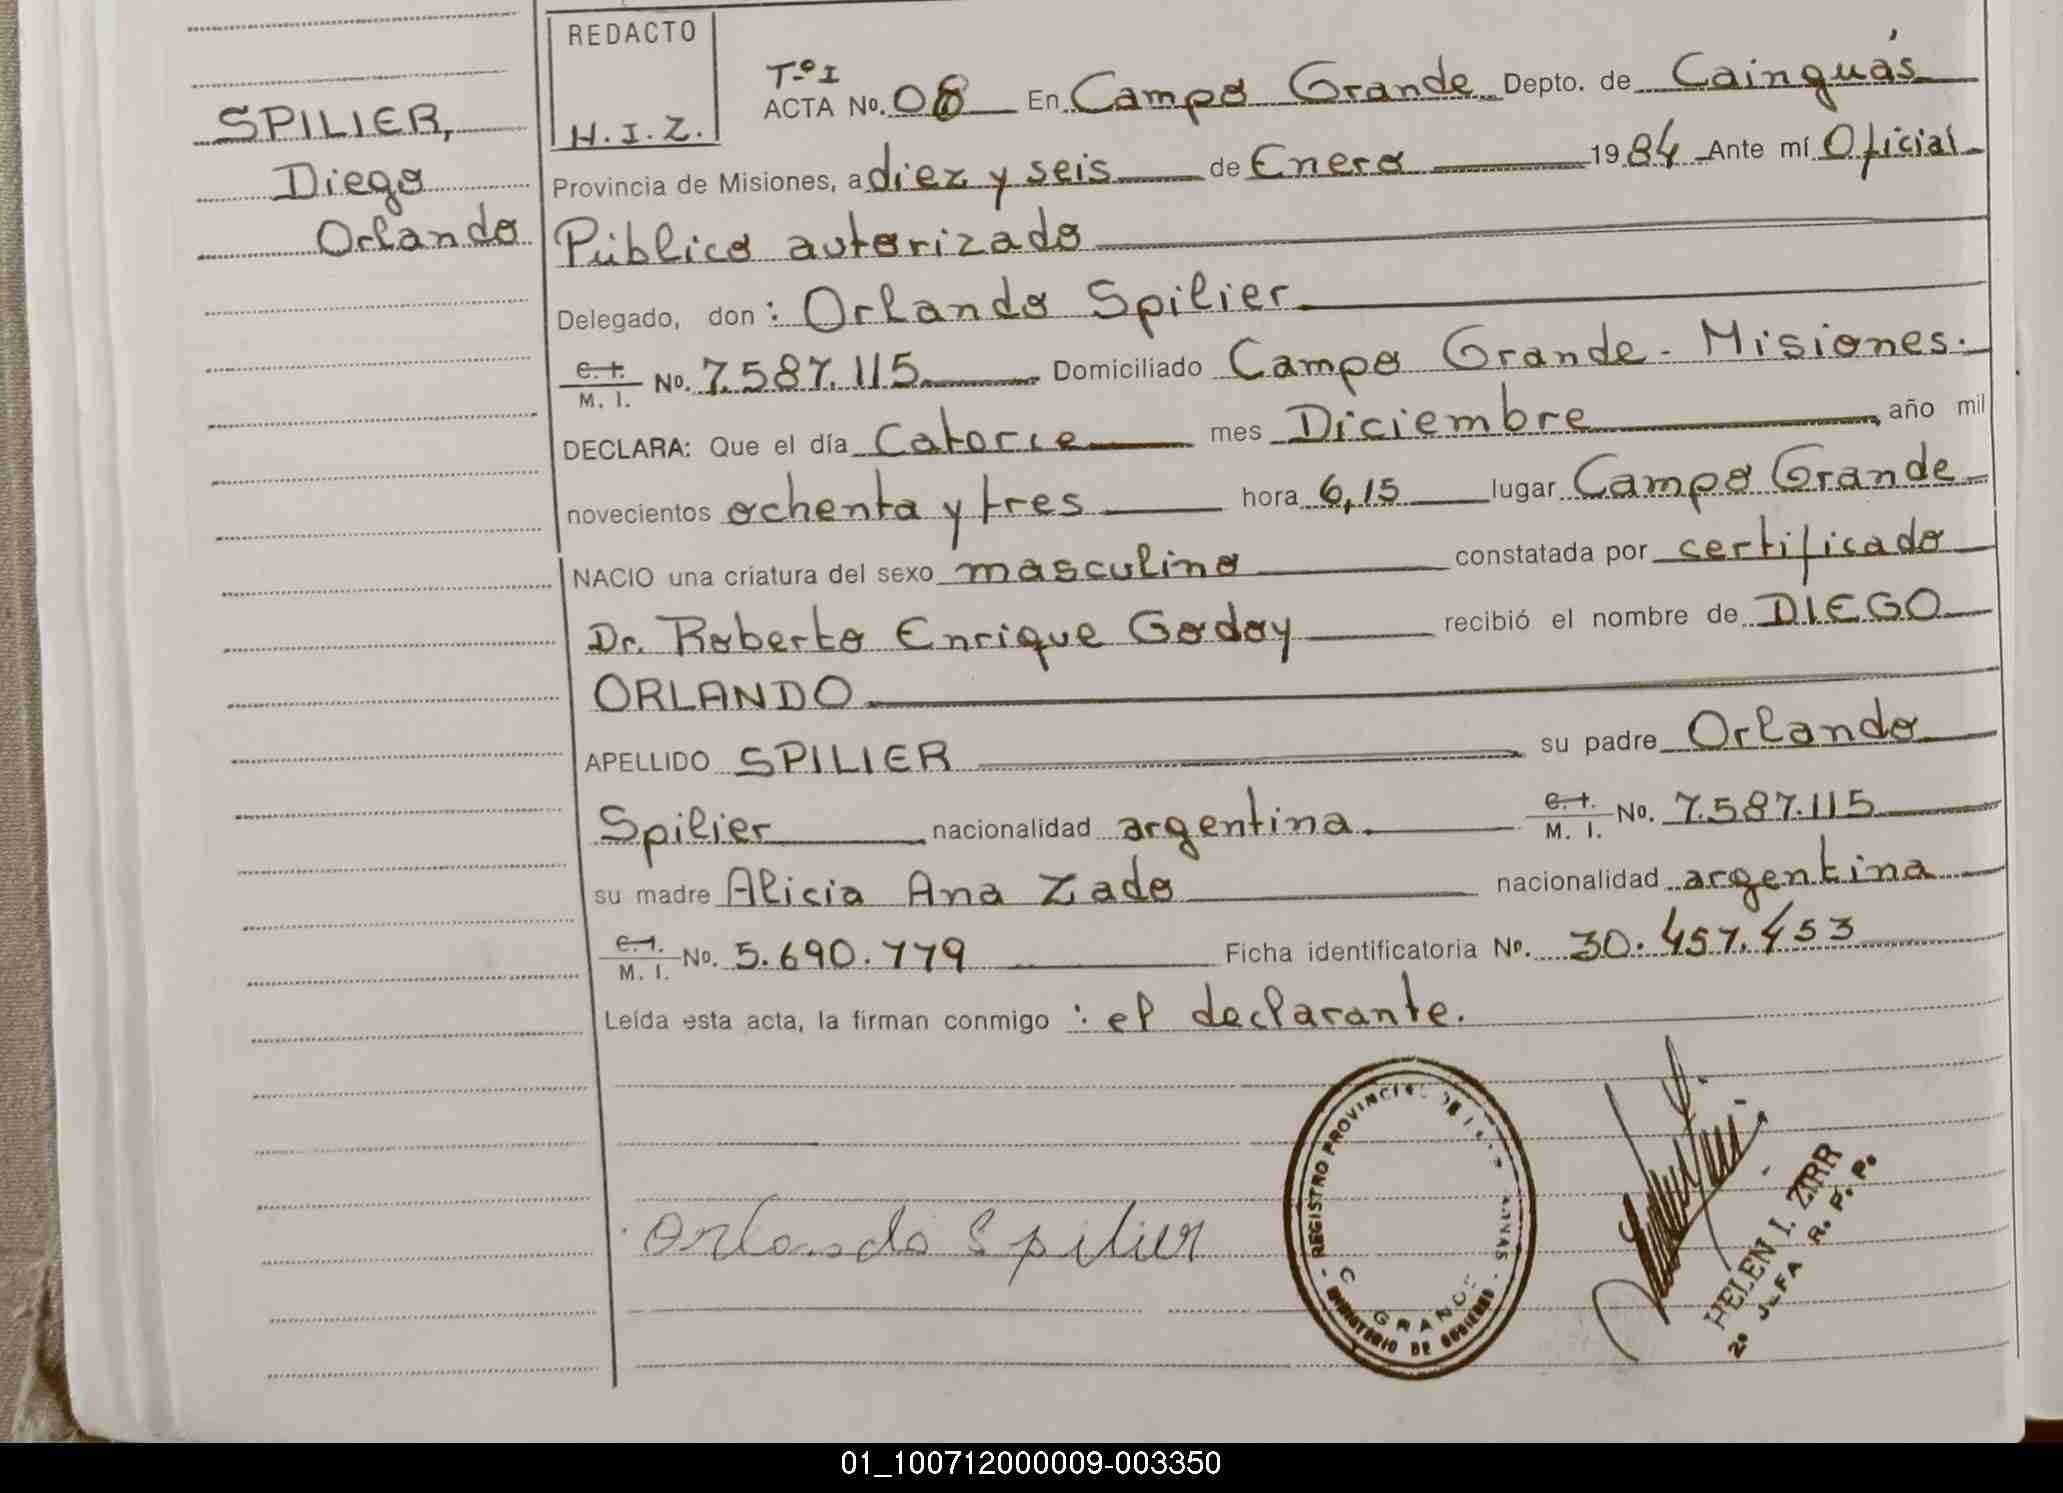 REDACTO
H. I. Z.
SPILIER,
Diego
Orlando
Tº I
ACTA No. 08 En Campo Grande Depto. de Cainguás
Provincia de Misiones, a diez y seis de Enero 1984 Ante mí Oficial
Público autorizado
Delegado, don : Orlando Spilier
C. I. M. I. No. 7.587.115 Domiciliado Campo Grande - Misiones.
DECLARA: Que el día Catorce mes Diciembre, año mil
novecientos ochenta y tres hora 6,15 lugar Campo Grande
NACIO una criatura del sexo masculino constatada por certificado
Dr. Roberto Enrique Godoy recibió el nombre de DIEGO
ORLANDO
APELLIDO SPILIER su padre Orlando
Spilier nacionalidad argentina. C. I. M. I. No. 7.587.115
su madre Alicia Ana Zado nacionalidad argentina
C. I. M. I. No. 5.690.779 Ficha identificatoria Nº. 30.457.453
Leída esta acta, la firman conmigo : el declarante.
Orlando Spilier
REGISTRO PROVINCIAL DE LAS
GRANDE
DE
HELEN I. ZIRR
2º JEFA R. P. P.
01_100712000009-003350